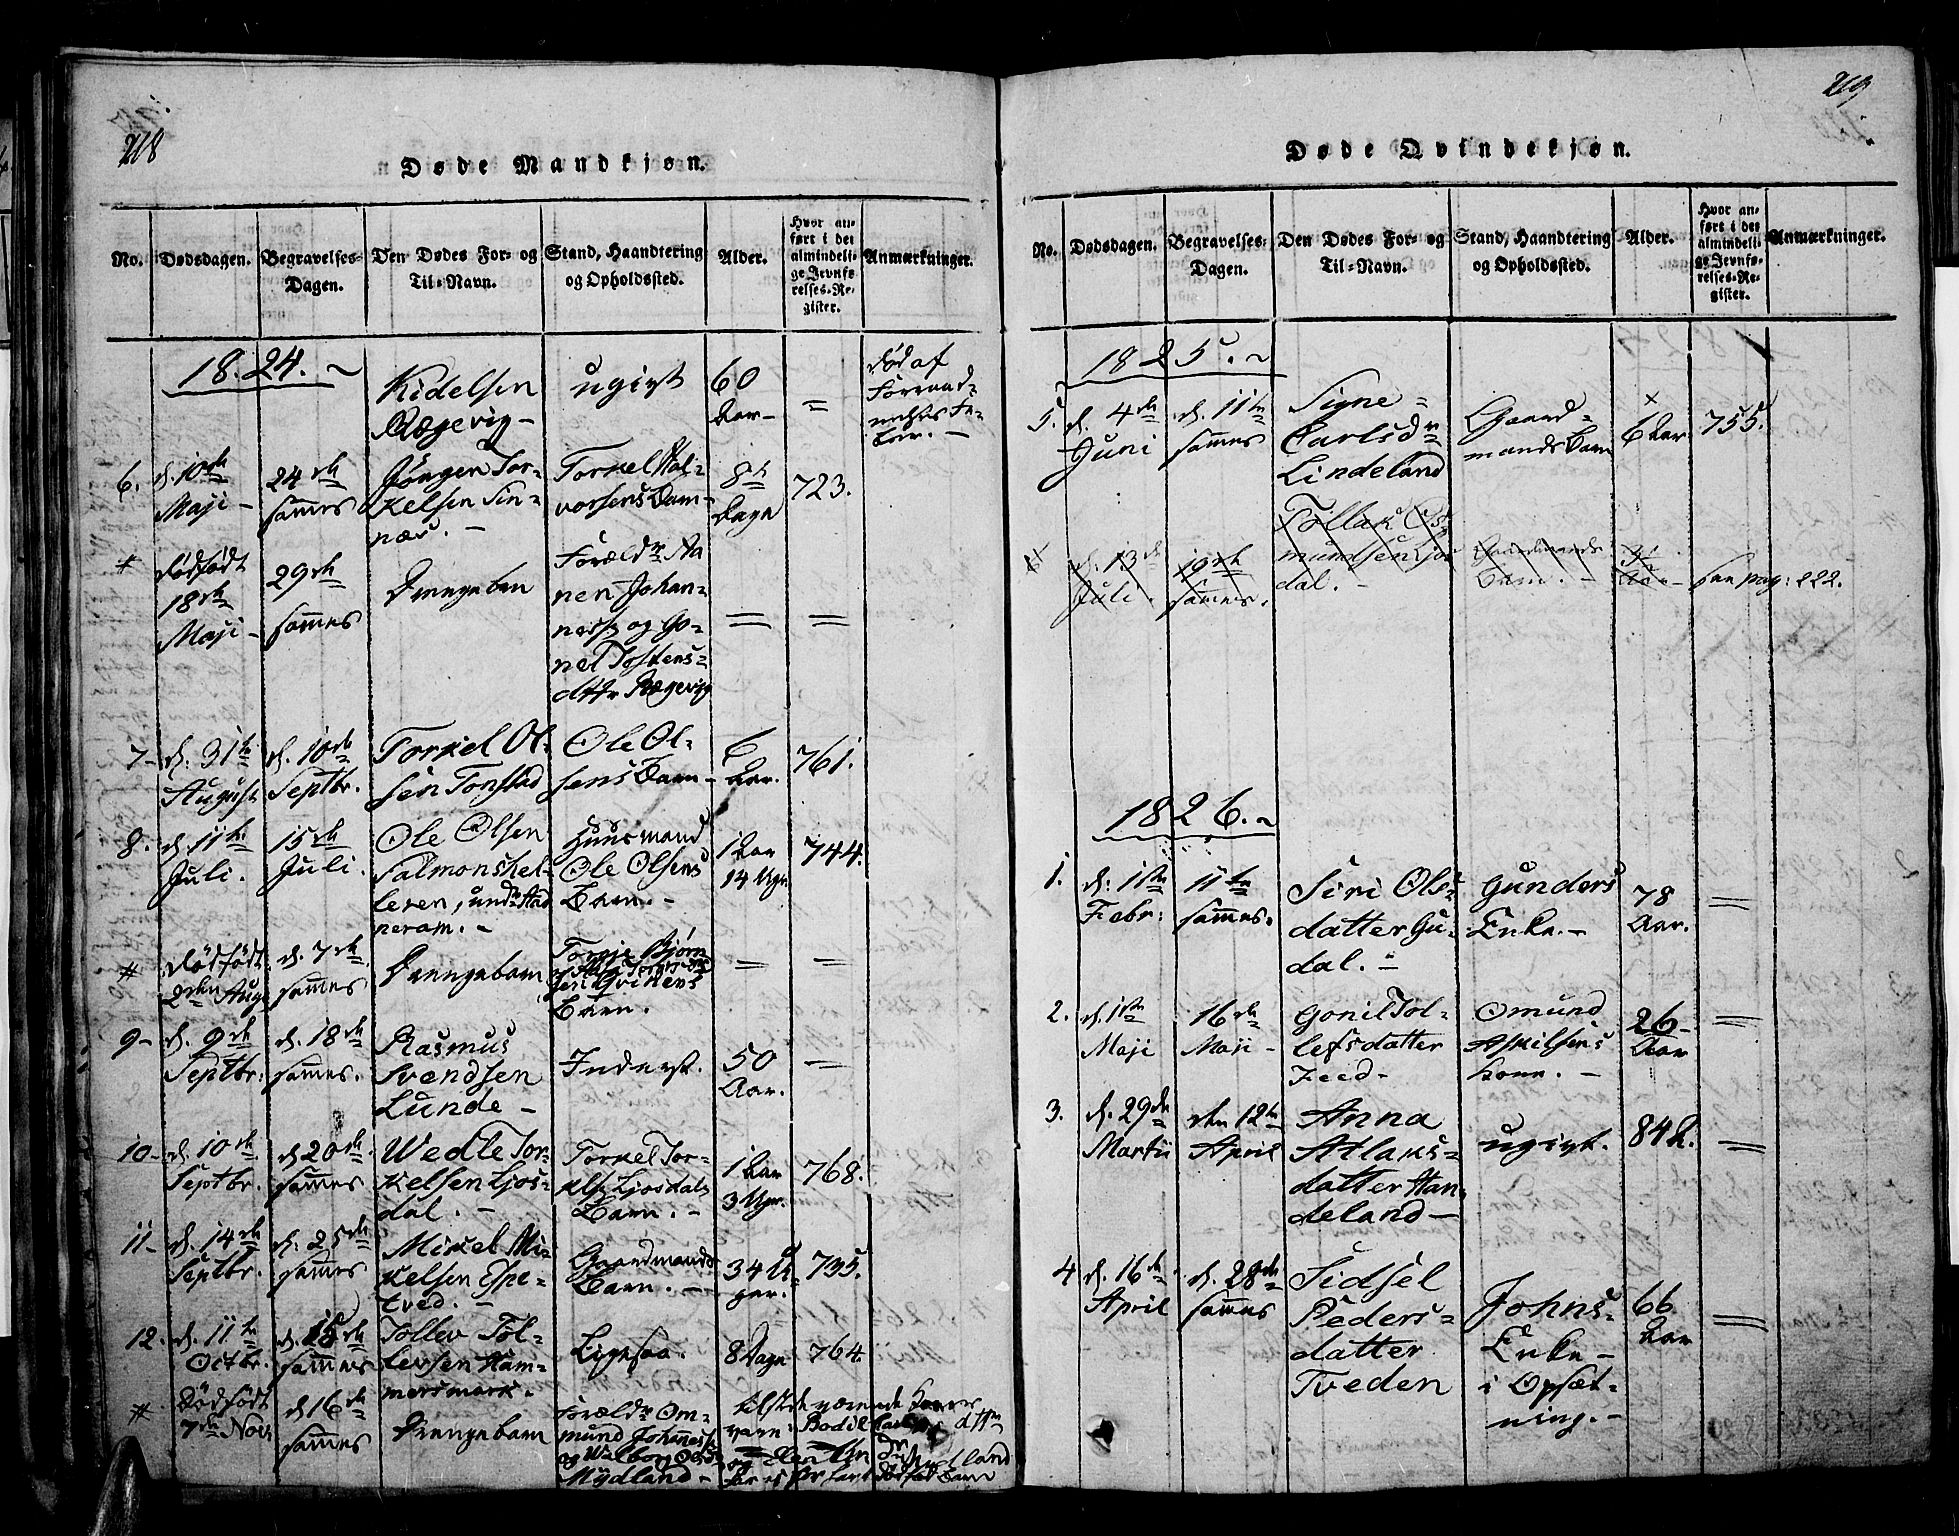 218
Døde Mandkjøn.
No.
Dødsdagen.
Begravelses-
Dagen.
Den Dødes For- og
Til-Navn.
Stand, Haandtering
og Opholdssted.
Alder.
Hvor an-
ført i det
almindeli-
ge Jevnfø-
relses-Re-
gister.
Anmærkninger.
1824.
Kidelsen
Rægevig -
ugivt
60
Aar -
=
død af
6.
d. 10de
Maji -
24de
sammes
Jörgen Tor-
kelsen Sin-
næs. -
Torkel Hal-
vorsens Barn -
8te
Dage
723.
#
dødfødt
18de
Maji -
29de
sammes
Drengebarn
Foreldr Aa
nen Johan-
ness og Go-
nel Tostens-
dttr Rægevig
=
=
7 -
d. 31te
August
d. 10de
Septbr.
Torkel Ol-
sen Tonstad
Ole Ol-
sens Barn -
6
Aar.
761.
8.
d. 11te
Juli.
15de
Juli.
Ole Olsen
Salmonshel-
leren, undr Aad
neram. -
Huusmand
Ole Olsens
Barn. -
1 Aar
14 Ugr.
744.
#
dødfødt
2den Aug.
d. 7de
sammes
Drengebarn
Barn.
=
=
9 -
d. 9de
Septbr.
d. 18de
sammes.
Rasmus
Svendsen
Lunde -
Inderst.
50
Aar.
=
10 -
d. 10de
Septbr.
d. 20de
sammes
Wedle Tor-
kelsen Ljos-
dal. -
Torkel Tor-
kels Ljosdals
Barn. -
1 Aar
3 Ugr.
768.
11 -
d. 14de
Septbr.
d. 25de
sammes
Mikel Mi-
kelsen Espe-
tved. -
Gaardmands
Barn. -
34 U-
ger.
735.
12.
d. 11te
Octbr.
d. 15de
sammes
Tollev Tol-
levsen Ham-
mersmark.
Ligesaa.
8 Dage
764.
#
Dødfødt
7de Novr
d. 16de
sammes
Drengebarn
Foreldr Om-
mund Johanness
og Walborg Olsdr
Mydland -
219
Døde Qvindekjøn.
No.
Dødsdagen.
Begravelses-
Dagen.
Den Dødes For- og
Til-Navn.
Stand, Haandtering
og Opholdssted.
Alder.
Hvor an-
ført i det
almindeli-
ge Jevnfø-
relses-Re-
gister.
Anmærkninger.
1825.
5.
d. 4de
Juni
d. 11te
sammes
Signe
Carlsdr
Lindeland
Gaard-
mands Barn
×
6 Aar
755.
d. 13de
Juli.
19de
sammes.
Tollak Os-
mundsen Ljos
dal. -
Gaardmands
Barn. -
3
Aar -
see pag: 222.
1826.
1.
d. 1ste
Febr:
11te
sammes.
Siri Ols-
datter Gu-
dal.
Gunders
Enke. -
78
Aar.
=
2.
d. 1ste
Maji
16de
Maji -
Gonil Tol-
lefsdatter
Feed -
Omund
Askilsens
Kone. -
26 -
Aar
=
3.
d. 29de
Martii
den 12te
April
Anna
Atlaks-
datter Han-
deland -
ugivt.
84 A.
=
4
d. 16de
April
d. 28de
sammes
Sidsel
Peders-
datter
Tveden
Johns
Enke -
i Opsæt-
ning. -
66
Aar
=